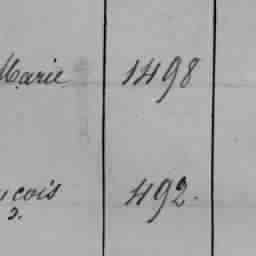 Marie 1498
çois 492.